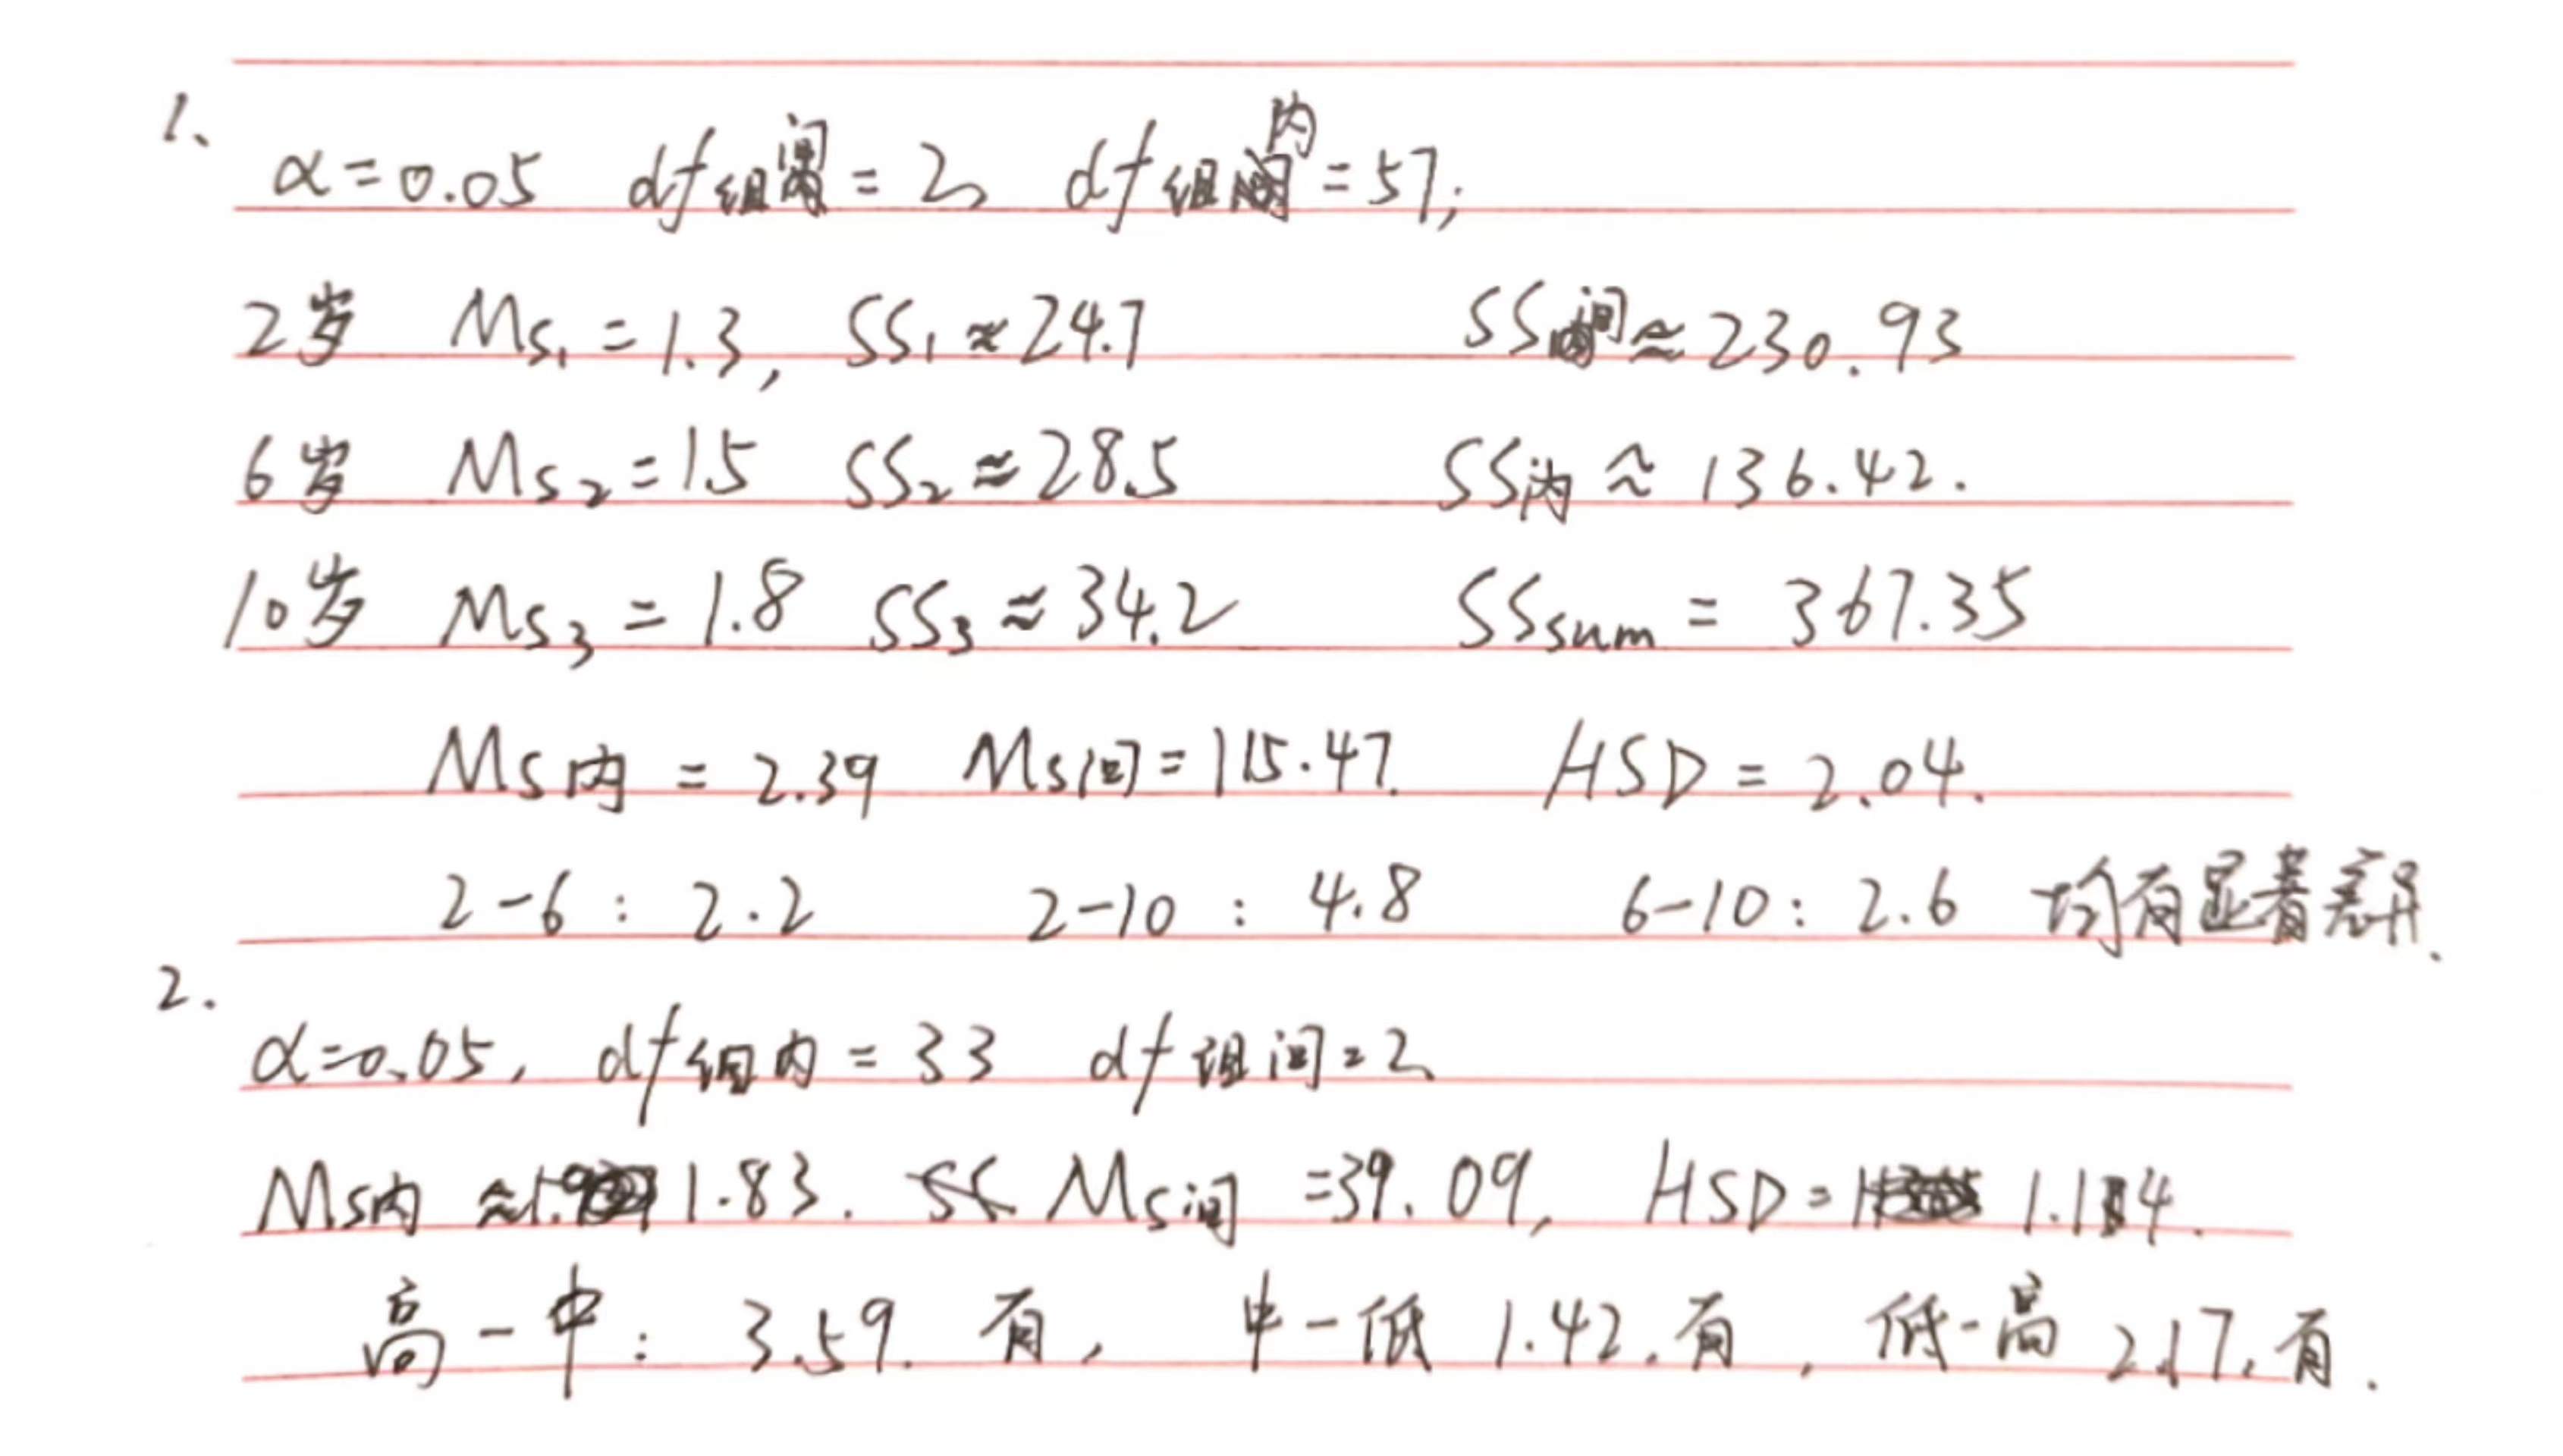 1、
α=0.05 df组间=2 df组内=57;
2岁 MS₁=1.3, SS₁≈24.7 SS间≈230.93
6岁 MS₂=1.5 SS₂≈28.5 SS内≈136.42.
10岁 MS₃=1.8 SS₃≈34.2 SSsum=367.35
MS内=2.39 MS间=115.47 HSD=2.04.
2-6: 2.2 2-10: 4.8 6-10: 2.6 均有显著差异.
2.
α=0.05, df组内=33 df组间=2
MS内≈1.83. MS间=39.09, HSD=1.14.
高-中: 3.59. 有, 中-低 1.42. 有, 低-高 2.17. 有.